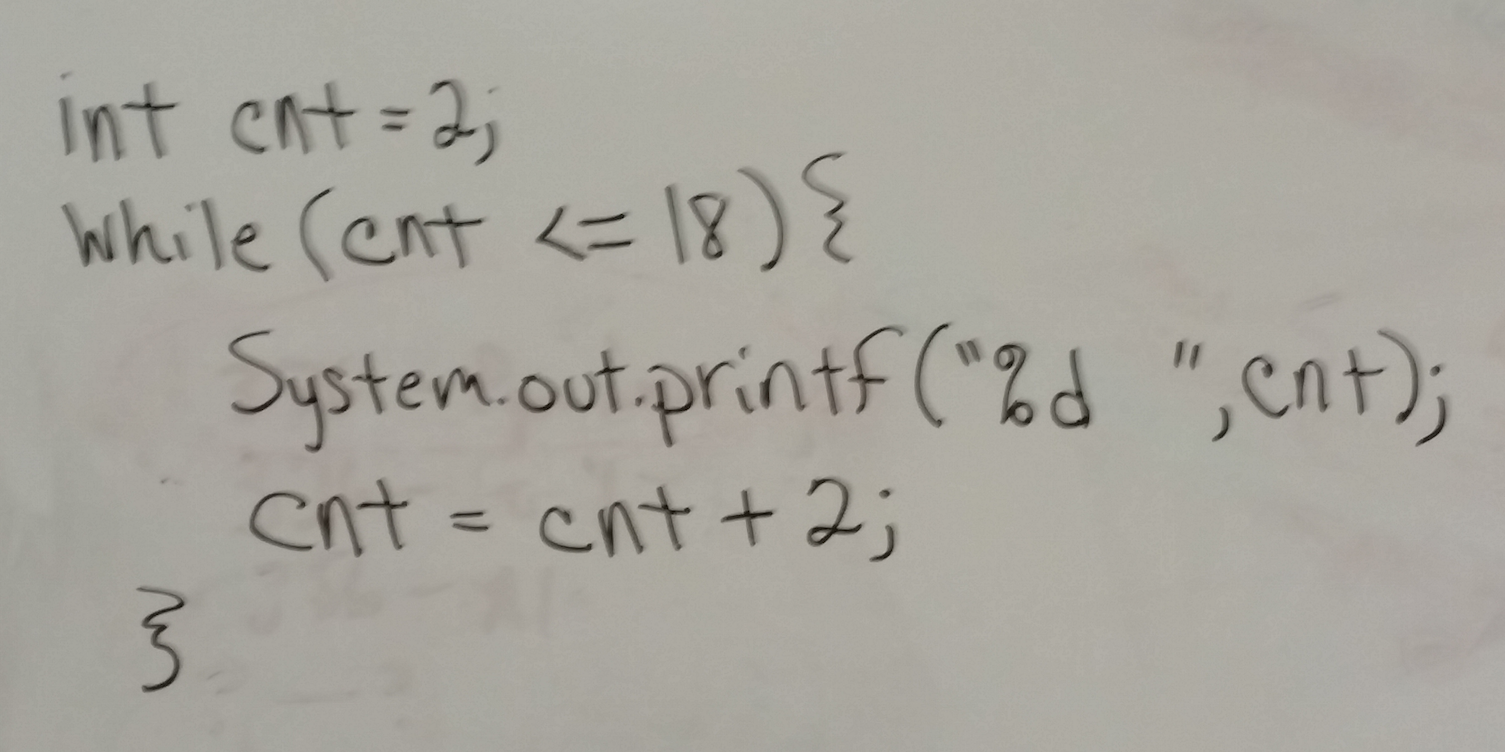 int cnt = 2;
while (cnt <= 18) {
System.out.printf("%d ", cnt);
cnt = cnt + 2;
}